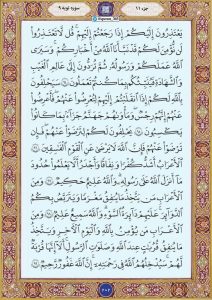 جزء ۱۱
سوره توبه ۹
يَعْتَذِرُونَ إِلَيْكُمْ إِذَا رَجَعْتُمْ إِلَيْهِمْ قُل لَّا تَعْتَذِرُوا
لَن نُّؤْمِنَ لَكُمْ قَدْ نَبَّأَنَا اللَّهُ مِنْ أَخْبَارِكُمْ وَسَيَرَى
اللَّهُ عَمَلَكُمْ وَرَسُولُهُ ثُمَّ تُرَدُّونَ إِلَىٰ عَالِمِ الْغَيْبِ
وَالشَّهَادَةِ فَيُنَبِّئُكُم بِمَا كُنتُمْ تَعْمَلُونَ ٩٤ سَيَحْلِفُونَ
بِاللَّهِ لَكُمْ إِذَا انقَلَبْتُمْ إِلَيْهِمْ لِتُعْرِضُوا عَنْهُمْ فَأَعْرِضُوا
عَنْهُمْ إِنَّهُمْ رِجْسٌ وَمَأْوَاهُمْ جَهَنَّمُ جَزَاءً بِمَا كَانُوا
يَكْسِبُونَ ٩٥ يَحْلِفُونَ لَكُمْ لِتَرْضَوْا عَنْهُمْ فَإِن
تَرْضَوْا عَنْهُمْ فَإِنَّ اللَّهَ لَا يَرْضَىٰ عَنِ الْقَوْمِ الْفَاسِقِينَ ٩٦
الْأَعْرَابُ أَشَدُّ كُفْرًا وَنِفَاقًا وَأَجْدَرُ أَلَّا يَعْلَمُوا حُدُودَ
مَا أَنزَلَ اللَّهُ عَلَىٰ رَسُولِهِ وَاللَّهُ عَلِيمٌ حَكِيمٌ ٩٧ وَمِنَ
الْأَعْرَابِ مَن يَتَّخِذُ مَا يُنفِقُ مَغْرَمًا وَيَتَرَبَّصُ بِكُمُ
الدَّوَائِرَ عَلَيْهِمْ دَائِرَةُ السَّوْءِ وَاللَّهُ سَمِيعٌ عَلِيمٌ ٩٨
وَمِنَ الْأَعْرَابِ مَن يُؤْمِنُ بِاللَّهِ وَالْيَوْمِ الْآخِرِ وَيَتَّخِذُ
مَا يُنفِقُ قُرُبَاتٍ عِندَ اللَّهِ وَصَلَوَاتِ الرَّسُولِ أَلَا إِنَّهَا قُرْبَةٌ
لَّهُمْ سَيُدْخِلُهُمُ اللَّهُ فِي رَحْمَتِهِ إِنَّ اللَّهَ غَفُورٌ رَّحِيمٌ ٩٩
۲۰۲